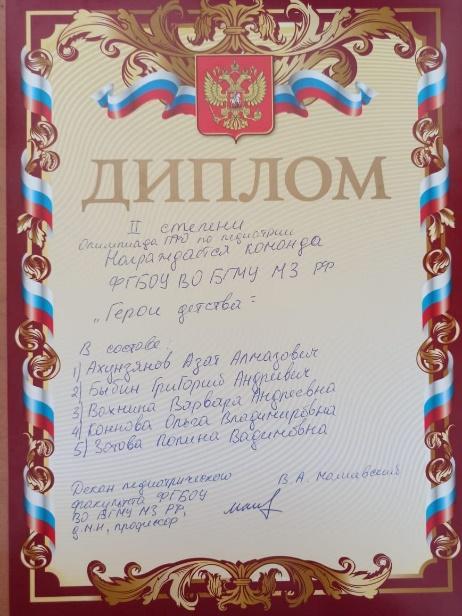 ДИПЛОМ
II степени
Олимпиада ПФО по педиатрии
Награждается команда
ФГБОУ ВО БГМУ МЗ РФ
„Герои детства"
В составе:
1) Ахунзянов Азат Алмазович
2) Быбин Григорий Андреевич
3) Вожнина Варвара Андреевна
4) Коннова Ольга Владимировна
5) Зотова Полина Вадимовна
Декан педиатрического
факультета ФГБОУ
ВО БГМУ МЗ РФ,
д.м.н, профессор
В.А. Малиевский